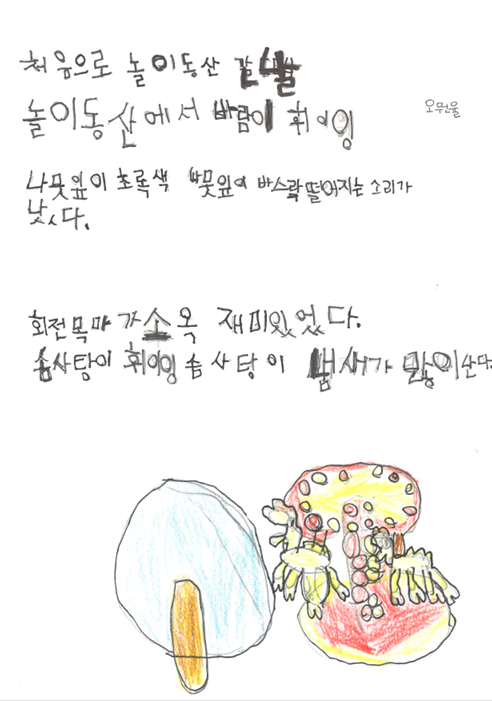 처음으로 놀이동산 간날
놀이동산에서 바람이 휘이잉
오무원율
나뭇잎이 초록색 나뭇잎이 바스락 떨어지는 소리가
낫다.
회전목마가 소옥 재미있었다.
솜사탕이 휘이잉 솜사탕이 냄새가 많이산다.